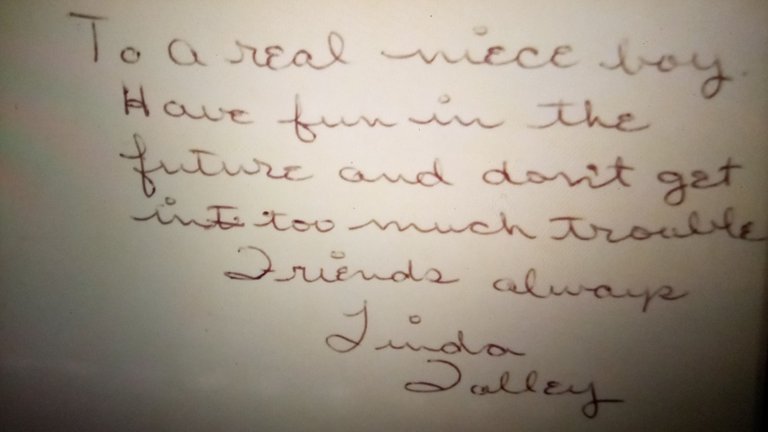 To a real niece boy.
Have fun in the
future and don't get
int too much trouble
Friends always
Linda
Talley